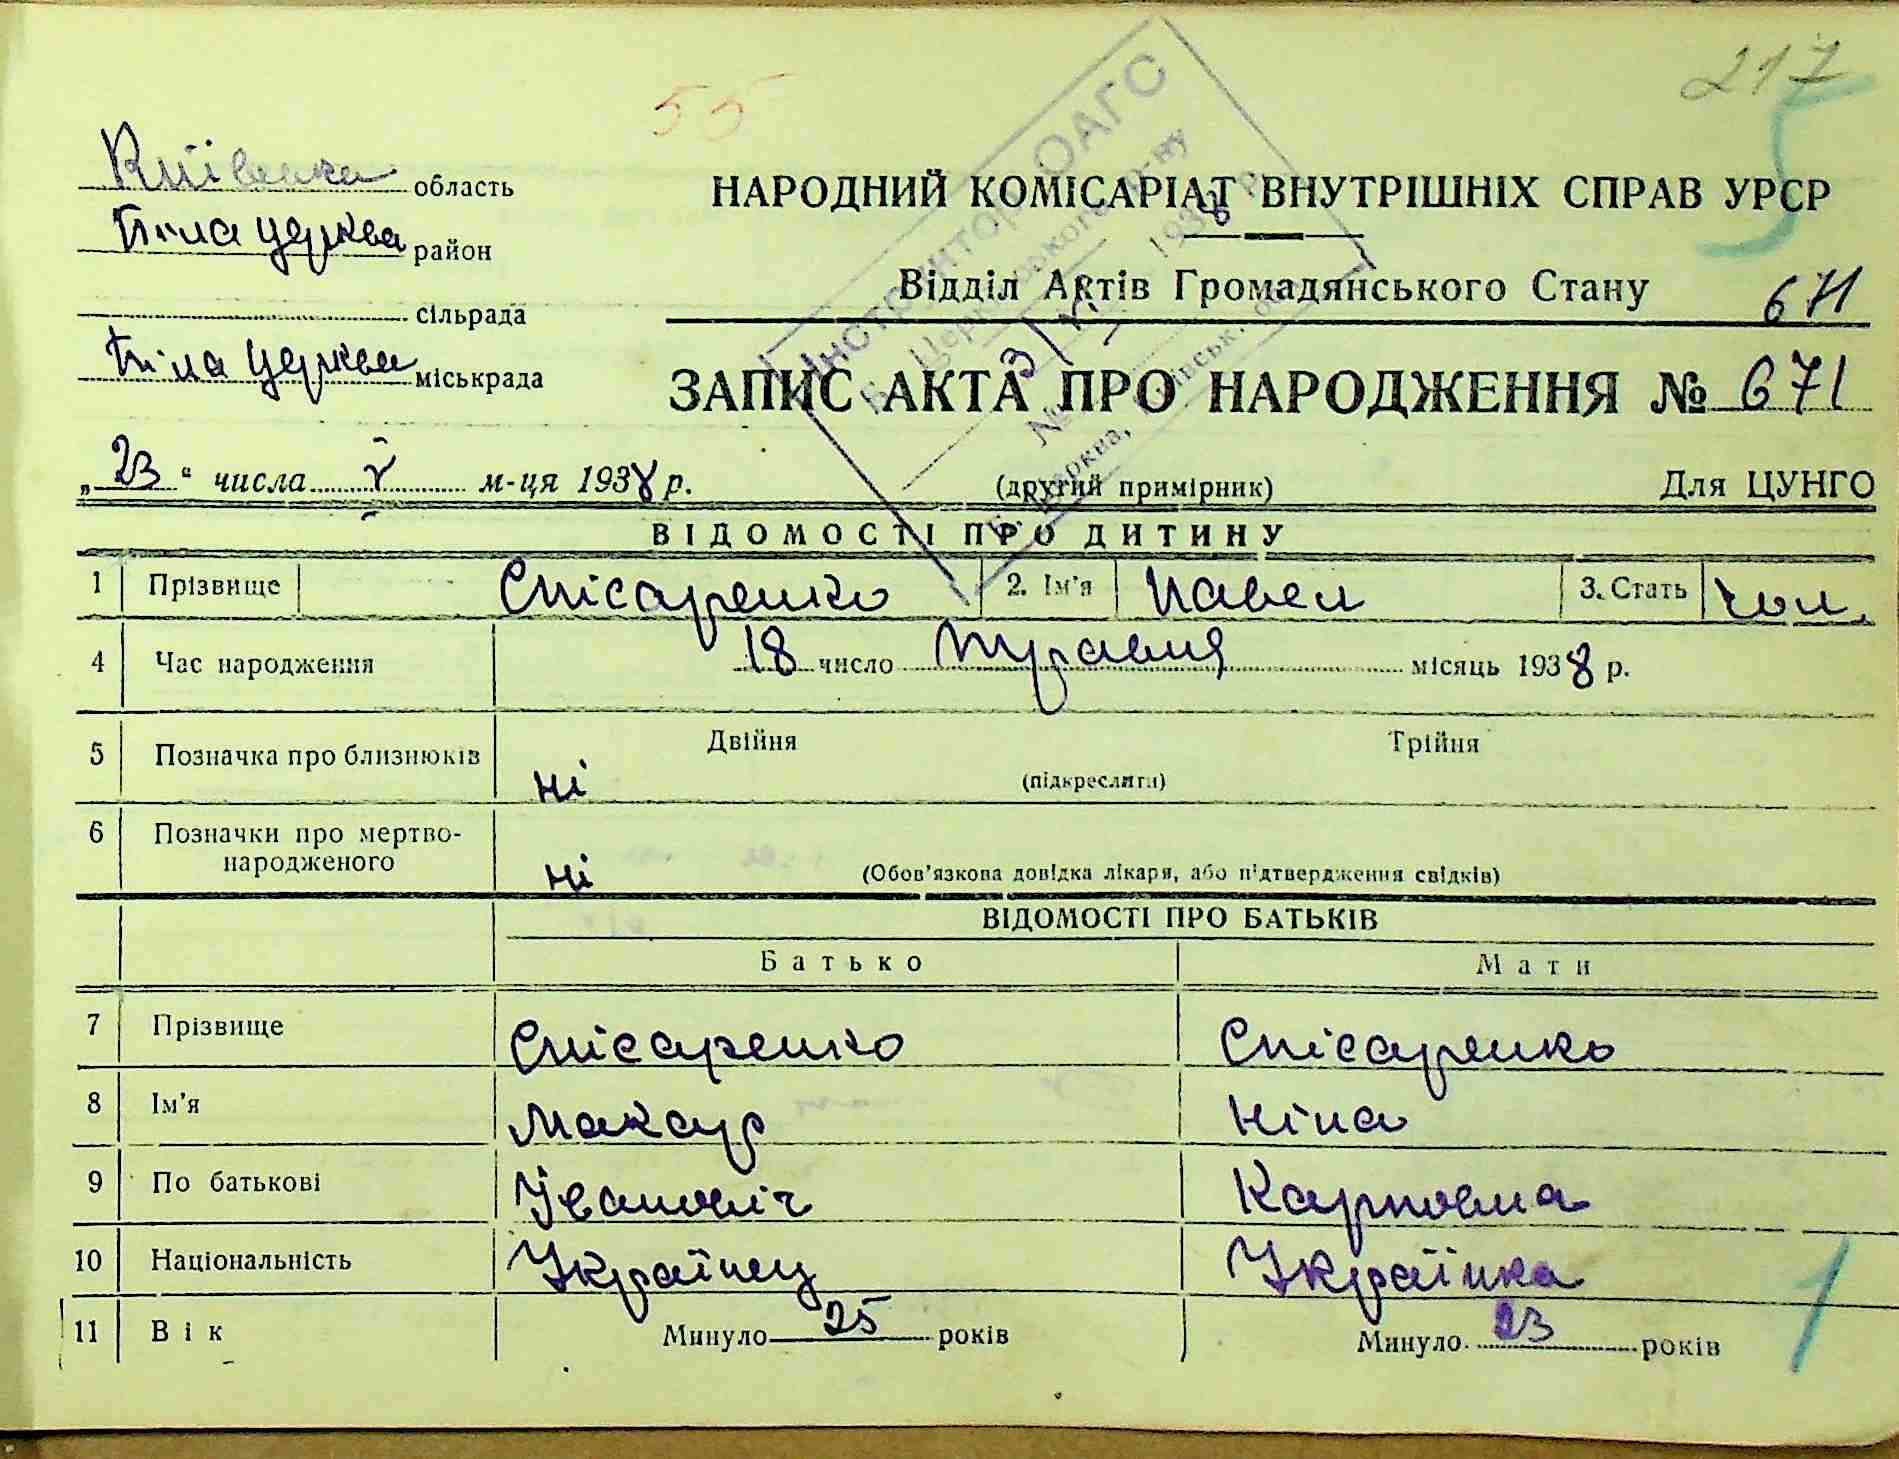 217
55
Київська область
Біла Церква район
сільрада
Біла Церква міськрада
НАРОДНИЙ КОМІСАРІАТ ВНУТРІШНІХ СПРАВ УРСР
Відділ Актів Громадянського Стану 671
ЗАПИС АКТА ПРО НАРОДЖЕННЯ № 671
„23“ числа V м-ця 1938 р. (другий примірник) Для ЦУНГО
ВІДОМОСТІ ПРО ДИТИНУ
1 Прізвище Слісаренко 2. Ім'я Павел 3. Стать чол.
4 Час народження 18 число травня місяць 1938 р.
5 Позначка про близнюків ні Двійня Трійня
(підкреслити)
6 Позначки про мертво-
народженого ні (Обов'язкова довідка лікаря, або підтвердження свідків)
ВІДОМОСТІ ПРО БАТЬКІВ
Батько Мати
7 Прізвище Слісаренко Слісаренко
8 Ім'я Макар Ніна
9 По батькові Івановіч Карповна
10 Національність Українец Українка
11 Вік Минуло 25 років Минуло 23 років